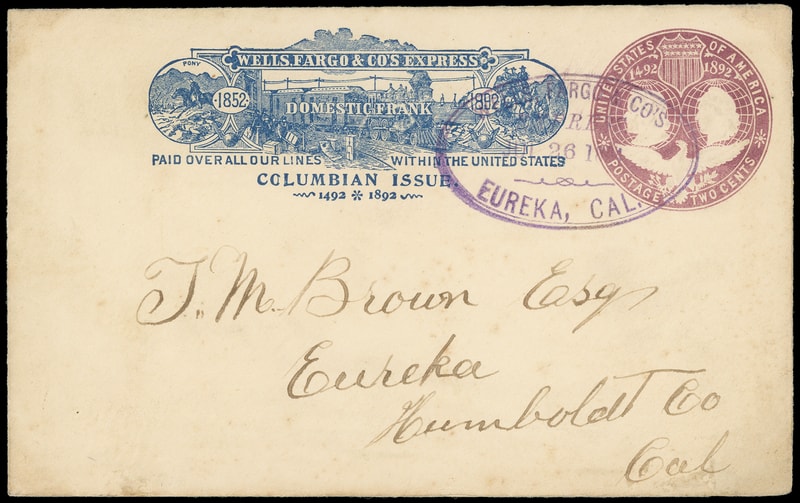 PONY
WELLS, FARGO & CO'S EXPRESS
1852
DOMESTIC FRANK
1892
PAID OVER ALL OUR LINES WITHIN THE UNITED STATES
COLUMBIAN ISSUE.
1492 1892
UNITED STATES OF AMERICA
1492 1892
POSTAGE TWO CENTS
FARGO & CO'S
26
EUREKA, CAL.
T. M. Brown Esq
Eureka
Humboldt Co
Cal